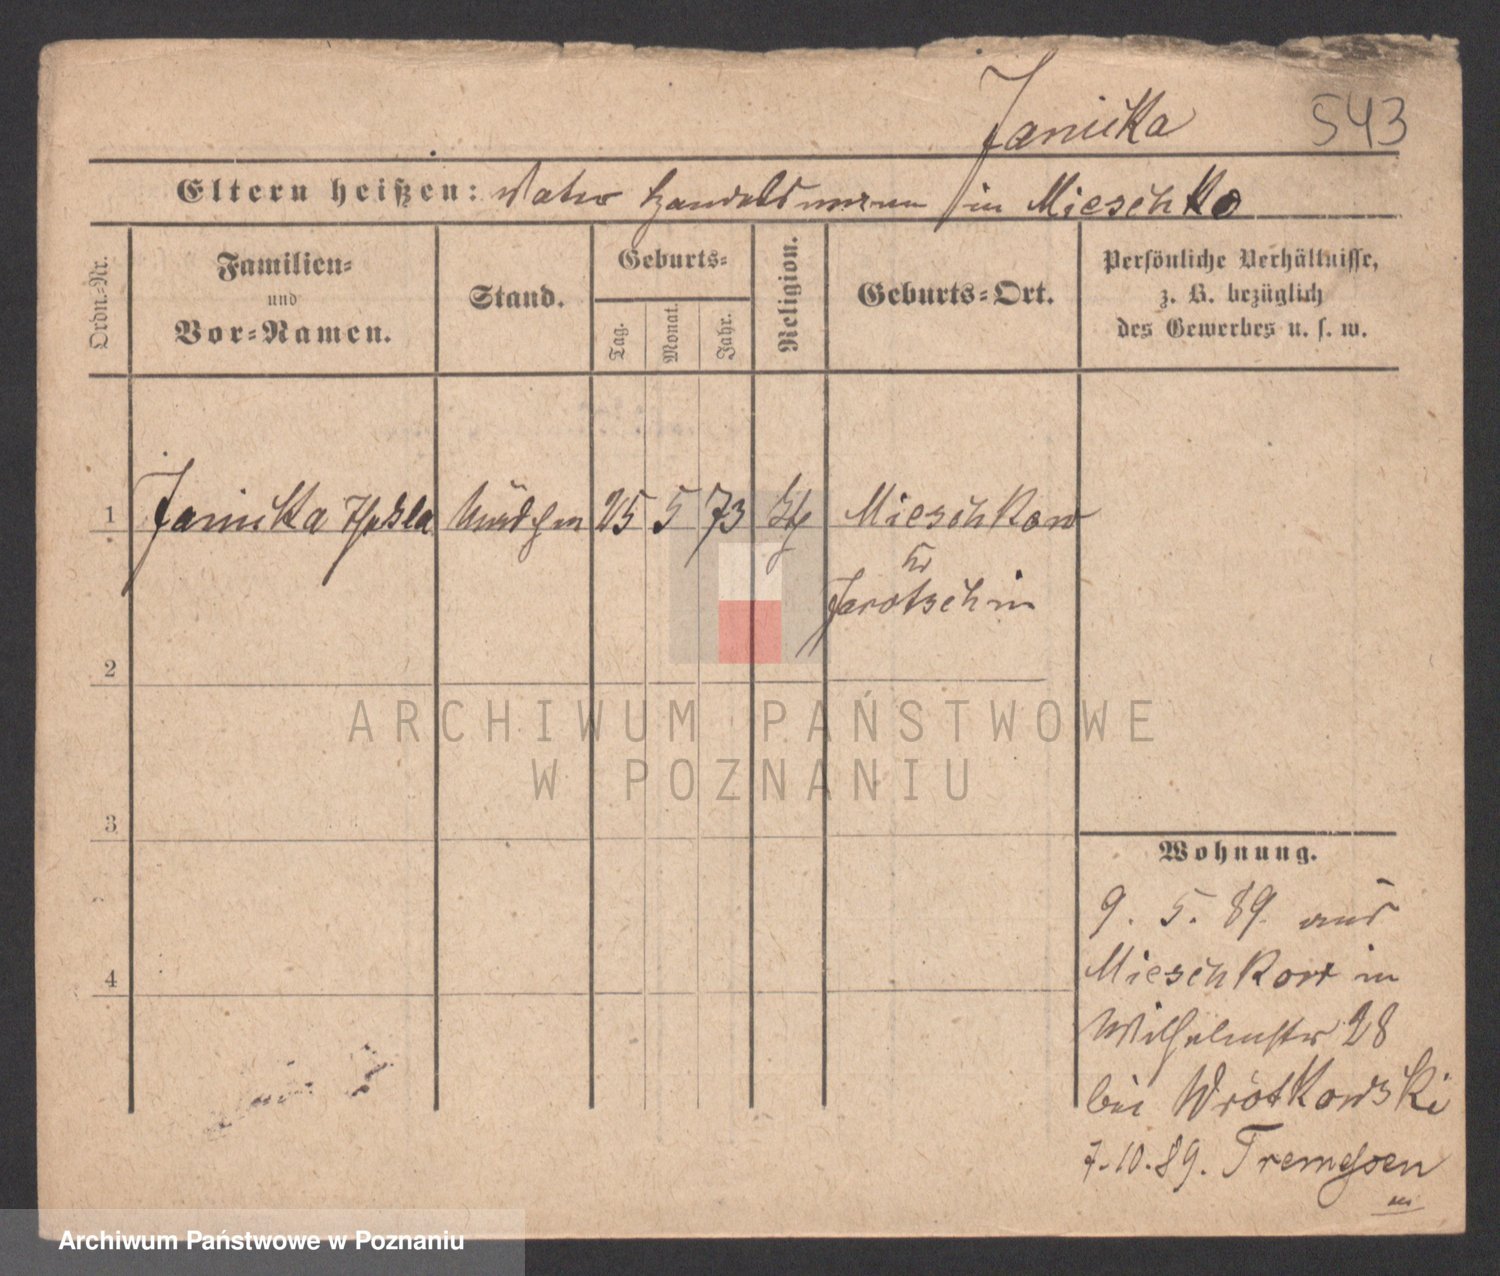 Janicka
543
Eltern heißen: Vater Handelsmann in Mieschko
Ordn.-Nr.
Familien-
und
Vor-Namen.
Stand.
Geburts-
Tag.
Monat.
Jahr.
Religion.
Geburts-Ort.
Persönliche Verhältnisse,
z. B. bezüglich
des Gewerbes u. s. w.
1 Janicka Thekla Mädchen 25 5 73 Mieschkow
Kr
Jarotschin
2
3
4
Wohnung.
9. 5. 89 aus
Mieschkow in
Wilhelmstr 28
bei Wrotkowski
7.10.89. Tremessen
ARCHIWUM PAŃSTWOWE
W POZNANIU
Archiwum Państwowe w Poznaniu